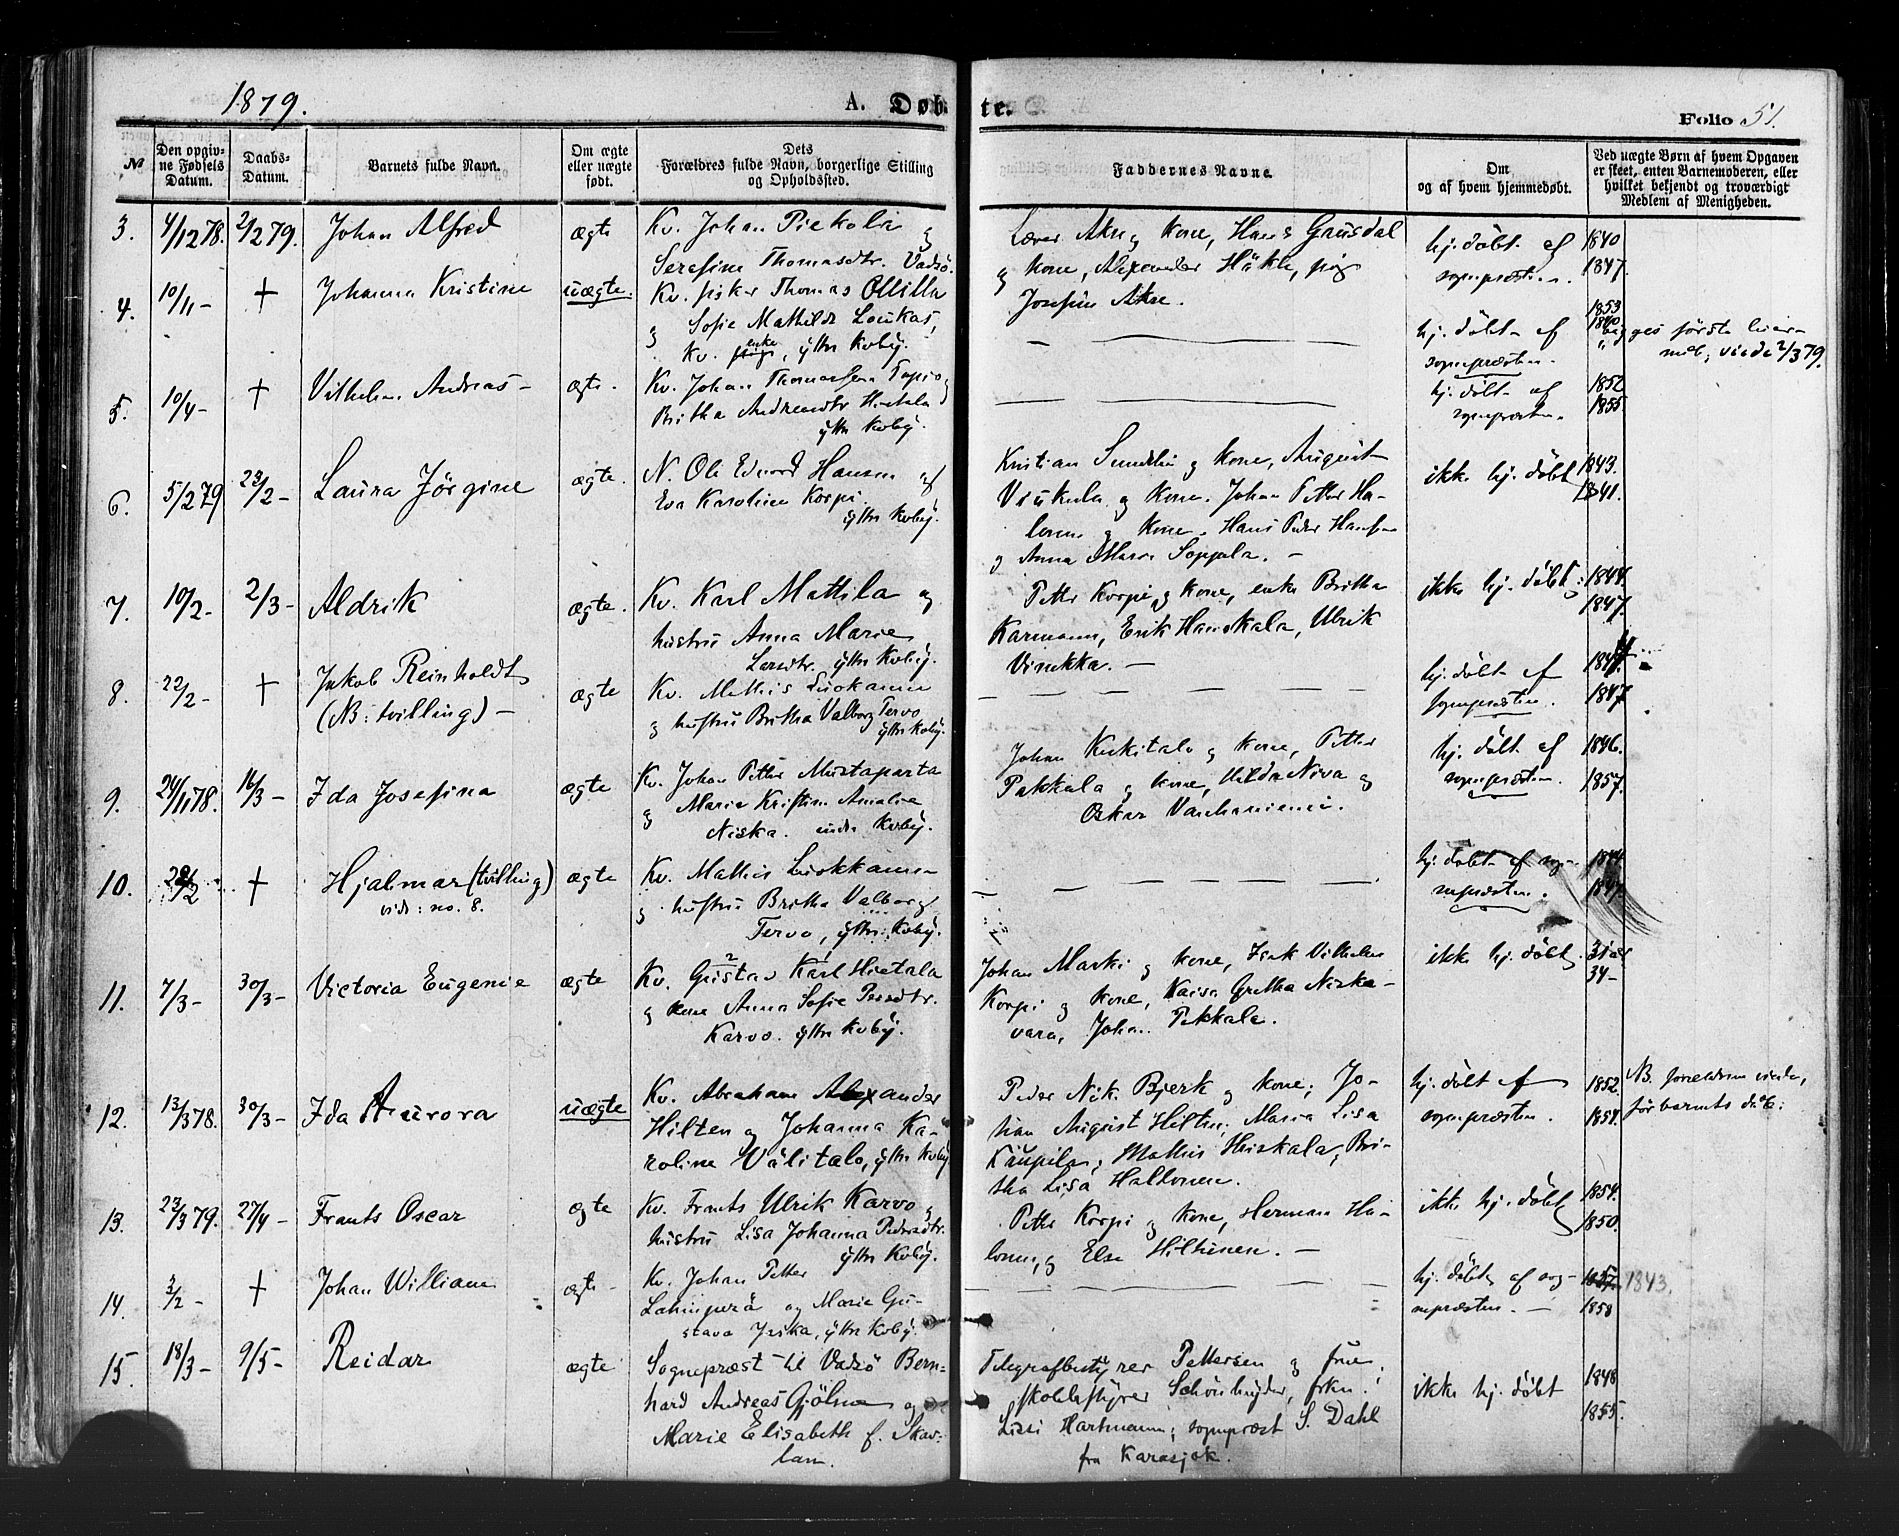 1879.
A. Døb
te.
Folio 51.
№
Den opgiv-
ne Fødsels
Datum.
Daabs-
Datum.
Barnets fulde Navn.
Om ægte
eller uægte
født.
Dets
Forældres fulde Navn, borgerlige Stilling
og Opholdsted.
Faddernes Navne.
Om
og af hvem hjemmedøbt.
Ved uægte Børn af hvem Opgaven
er skeet, enten Barnemoderen, eller
hvilket bekjendt og troværdigt
Medlem af Menigheden.
3.
4/12 78.
2/2 79.
Johan Alfred
ægte
Kv. Johan Piekola og
Serefine Thomasdtr. Vadsö.
og kone, Hans Grusdal
og kone, Alexander
Josefine Akre.
hj. döbt af
sognepræsten.
1840
1847.
4.
10/11 -
+
Johanna Kristine
uægte.
Kv. fisker Thomas Ollilla
og Sofie Mathilde Loukas,
Kv. enke, yttre Kvby.
hj. döbt af
sognepræsten.
1853
begges første leier-
maal; viede 2/3 79.
5.
10/4 -
+
Vilhelm Andreas -
ægte.
Kv. Johan Thomassen Tapio og
Britha Andreasdtr Hietala
yttre Kvby.
hj. döbt af
sognepræsten.
1852
1855.
6.
5/2 79
23/2 -
Laura Jörgine
ægte.
N. Ole Edvard Hansen og
Eva Karoline Korpi.
yttre Kvby.
Kristian Sundelin og kone, August
Viukula og kone, Johan Petter Ha-
lonen og kone, Hans Peder Hansen
og Anna Maria Soppela. -
ikke hj. döbt
1843.
1841.
7.
10/2 -
2/3 -
Aldrik
ægte.
Kv. Karl Mattila og
hustru Anna Marie
Larsdtr. yttre Kvby.
Petter Korpi og kone, enke Britha
Karmann, Erik Hauskala, Ulrik
Vinikka. -
ikke hj. döbt
1844.
1847.
8.
22/2 -
+
Jakob Reinholdt
(NB: tvilling) -
ægte
Kv. Mathis Luokanen
og hustru Britha Valborg Tervo
yttre Kvby.
hj. döbt af
sognepræsten.
1847
9.
24/11 78.
16/3 -
Ida Josefina
ægte
Kv. Johan Petter Mustaparta
og Maria Kristine Amalie
Niska. indre Kvby.
Johan Kukitalo og kone, Petter
Pekkala og kone, Hilda Niva og
Oskar Vanhaniemi.
hj. döbt af
sognepræsten.
1846.
1857.
10.
+
Hjalmar (tvilling)
vide: no. 8.
ægte
Kv. Mathis Luokkanen
og hustru Britha Valborg
Tervo, yttre Kvby.
hj. döbt af sog-
nepræsten.
1844
1847.
11.
7/3 -
30/3 -
Victoria Eugenie
ægte
Kv. Gustav Karl Hietala
og kone Anna Sofie Persdtr.
Karvo. yttre Kvby.
Johan Marki og kone, Isak Vilhelm
Korpi og kone, Kaisa Gretha Niska-
vara, Johan Pekkala.
ikke hj. döbt
31 år
34 -
12.
13/3 78.
30/3 -
Ida Aurora
uægte
Kv. Abraham Alexander
Hilten og Johanna Ka-
roline Välitalo, yttre Kvby
Peder Nik. Bjerk og kone; Jo-
han August Hilten, Maria Lisa
Kaupila; Mathis Heiskala; Bri-
tha Lisa Haltonen.
hj. döbt af
sognepræsten.
1852.
1854.
NB. forældrene viede,
för barnets daab.
13.
23/3 79.
27/4 -
Frants Oscar
ægte
Kv. Frants Ulrik Karvo og
hustru Lisa Johanna Pedersdtr.
yttre Kvby.
Petter Korpi og kone, Herman Ha-
lonen, og Else Hiltunen. -
ikke hj. döbt
1854.
1850.
14.
3/2 -
+
Johan William
ægte -
Kv. Johan Petter
Lahinperä og Maria Gu-
stava Jeska, yttre Kvby.
hj. döbt af sog-
nepræsten. -
1857 1843.
1858
15
18/3 -
9/5 -
Reidar
ægte
Sognepræst til Vadsö Bern-
hard Andreas Gjölme og
Marie Elisabeth f. Skav-
lan.
Telegrafbestyrer Pettersen og frue,
skolebestyrer Schönheyder, frkn.
Lissi Hartmann; sognepræst S. Dahl
fra Karasjok.
ikke hj. döbt
1848
1855.